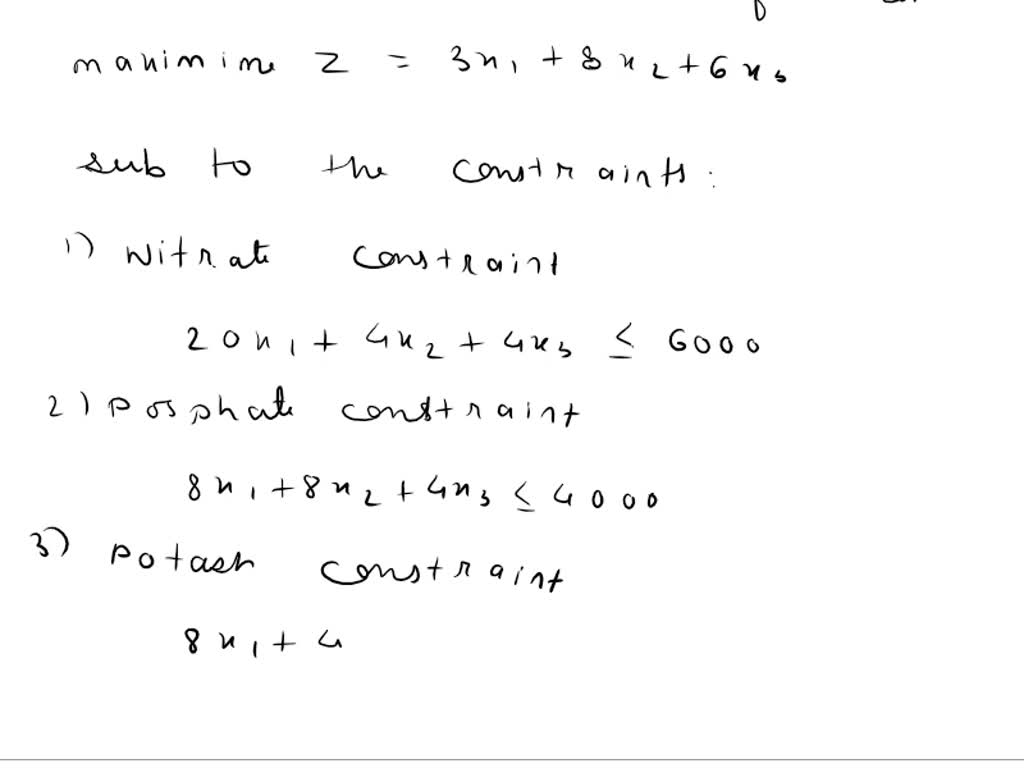 maximize z = 3x₁ + 8x₂ + 6x₃
sub to the constraints:
1) Nitrate constraint
20x₁ + 4x₂ + 4x₃ ≤ 6000
2) Posphate constraint
8x₁ + 8x₂ + 4x₃ ≤ 4000
3) Potash constraint
8x₁ + 4